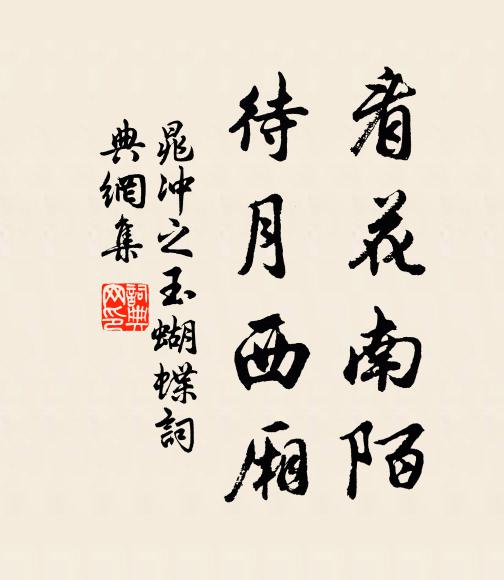 看花南陌
待月西厢
晁冲之玉蝴蝶詞
典網集
詞典
网印